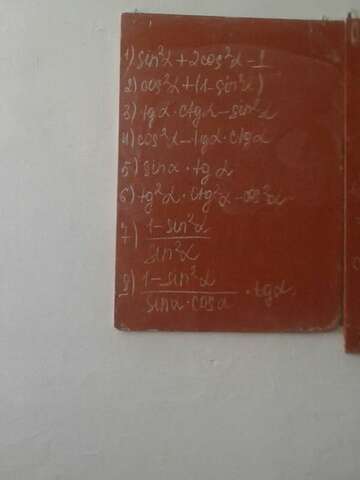 1) sin²α + 2cos²α - 1
2) cos²α + (1 - sin²α)
3) tgα · ctgα - sin²α
4) cos²α - tgα · ctgα
5) sinα · tgα
6) tg²α · ctg²α - cos²α
7) 1 - sin²α / sin²α
8) 1 - sin²α / sinα · cosα · tgα